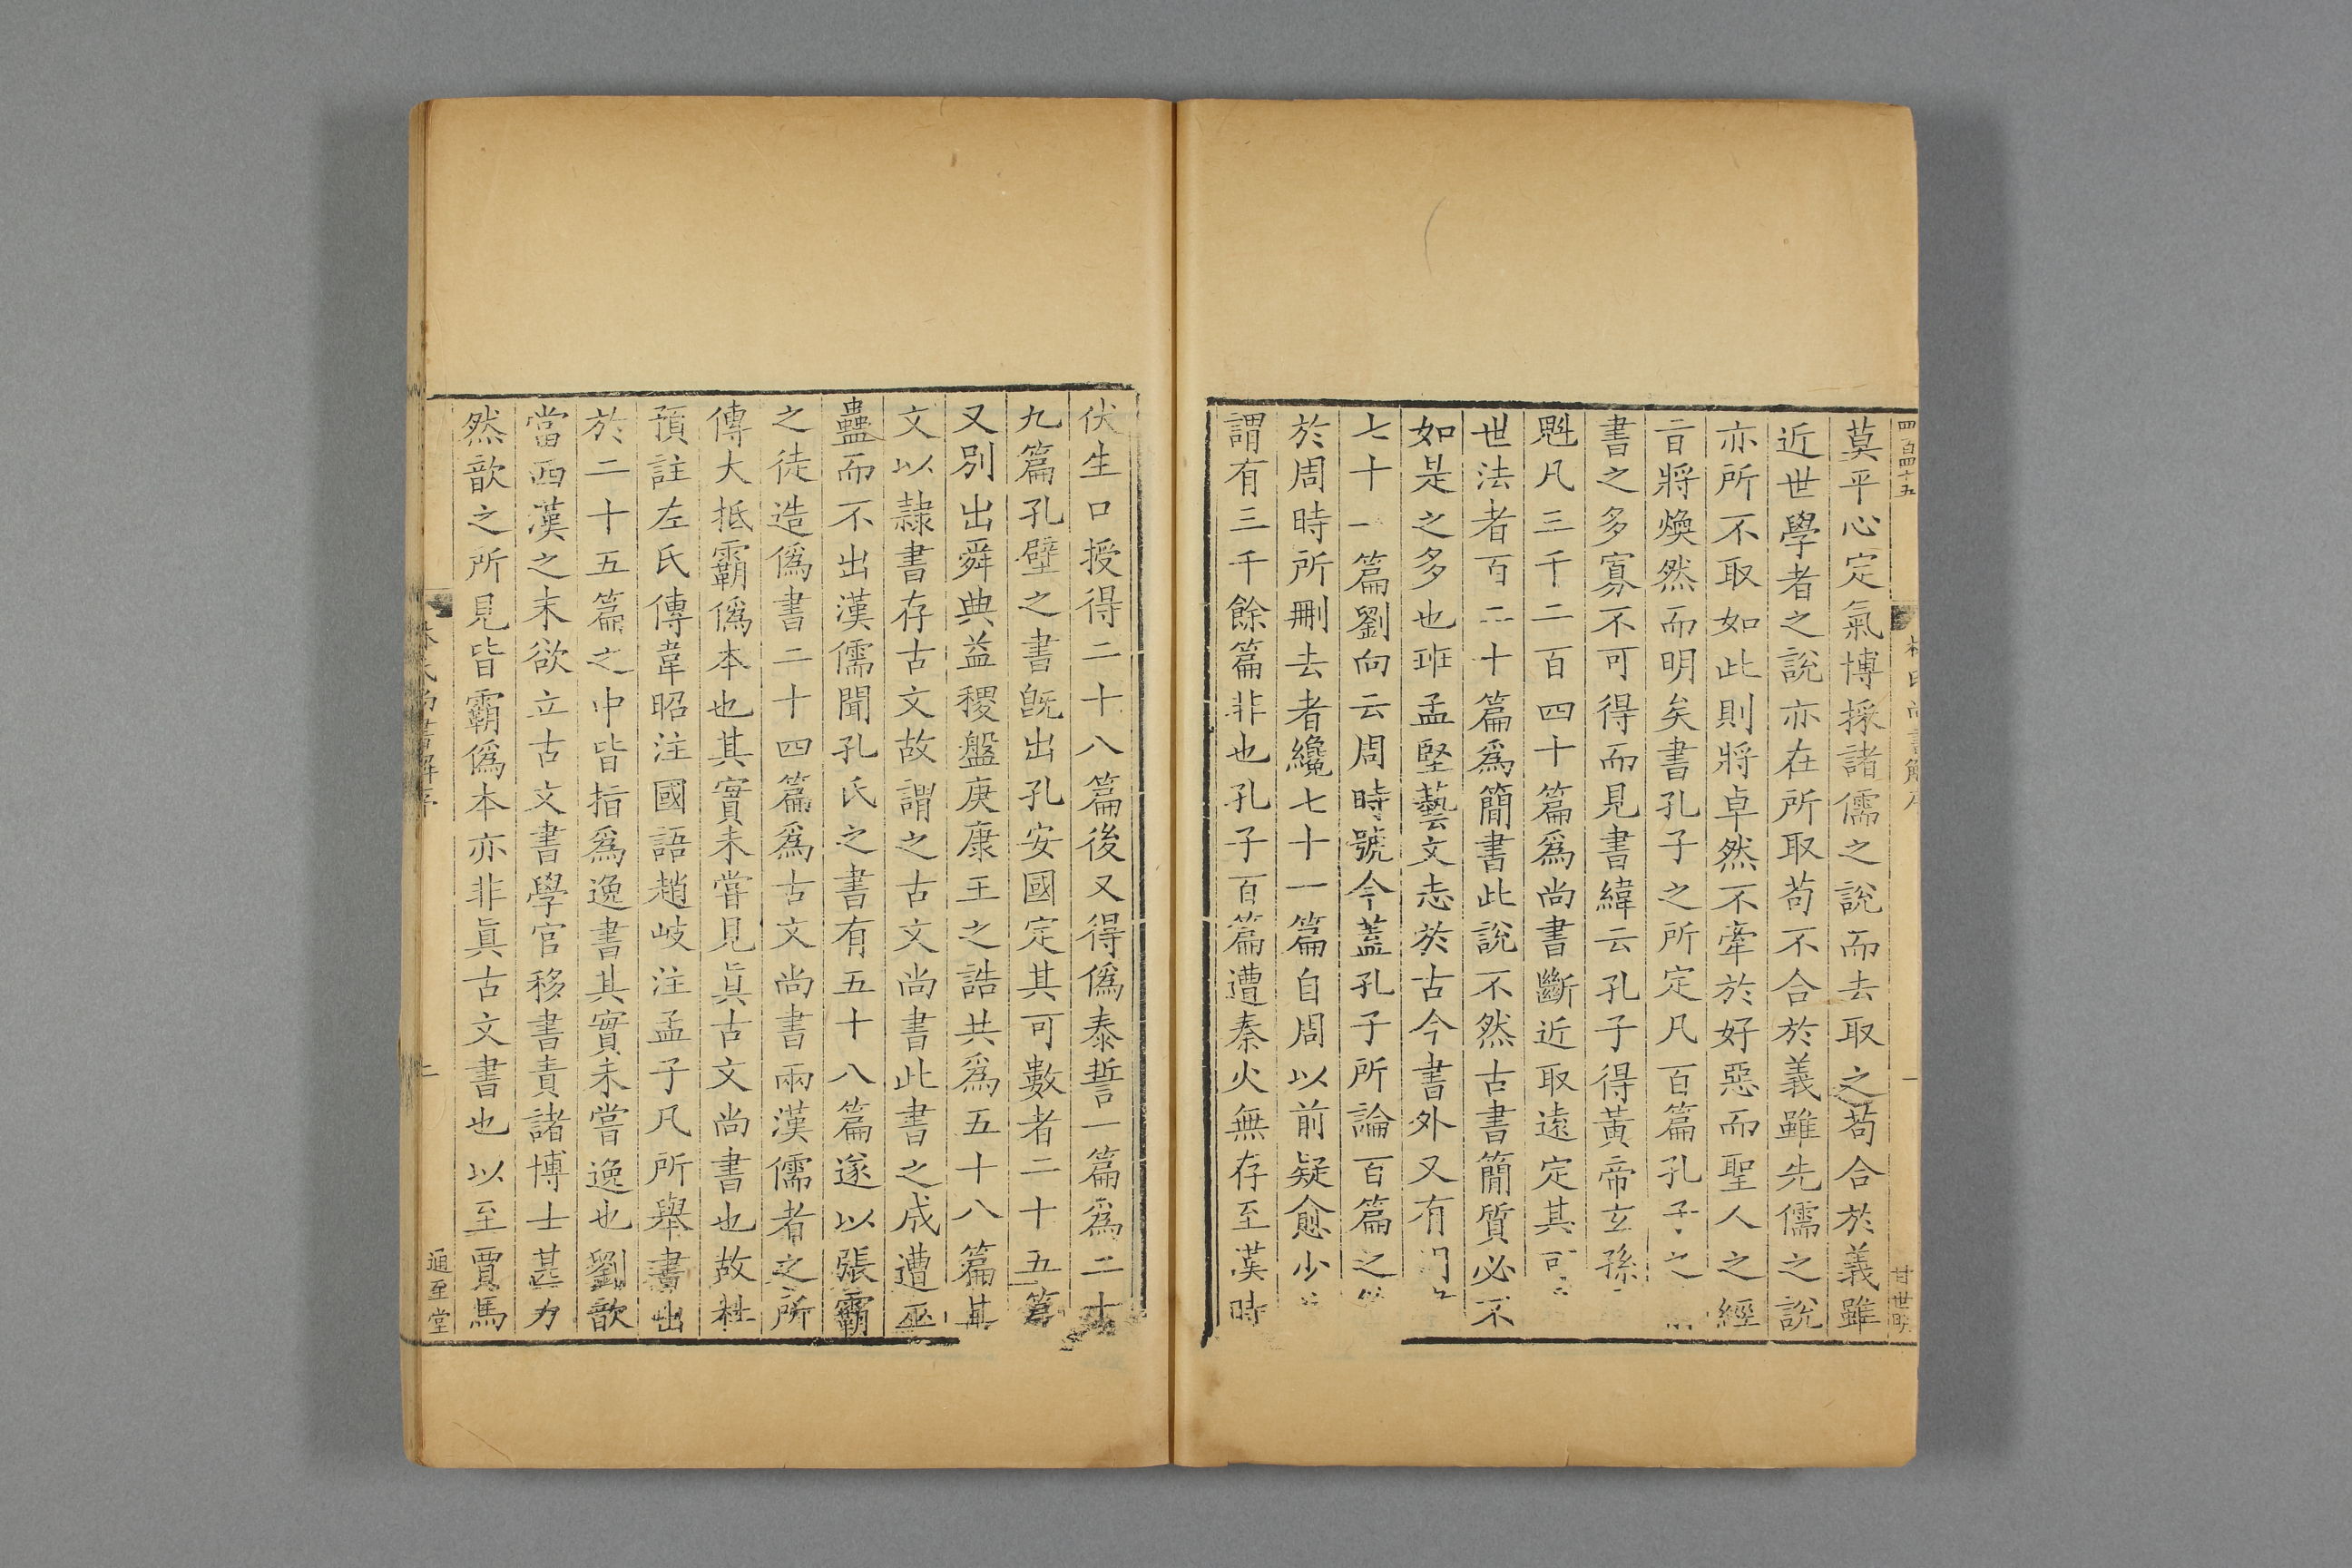 四百四十五
莫平心定氣博採諸儒之說而去取之苟合於義雖
近世學者之說亦在所取苟不合於義雖先儒之說
亦所不取如此則將卓然不牽於好惡而聖人之經
旨將煥然而明矣書孔子之所定凡百篇孔子之
書之多寡不可得而見書緯云孔子得黃帝玄孫
魁凡三千二百四十篇爲尚書斷近取遠定其可
世法者百二十篇爲簡書此說不然古書簡質必不
如是之多也班孟堅藝文志於古今書外又有
七十一篇劉向云周時號令蓋孔子所論百篇之
於周時所刪去者纔七十一篇自周以前疑愈少
謂有三千餘篇非也孔子百篇遭秦火無存至漢時
伏生口授得二十八篇後又得僞泰誓一篇爲二十
九篇孔壁之書旣出孔安國定其可數者二十五篇
又別出舜典益稷盤庚康王之誥共爲五十八篇其
文以隷書存古文故謂之古文尚書此書之成遭巫
蠱而不出漢儒聞孔氏之書有五十八篇遂以張霸
之徒造僞書二十四篇爲古文尚書兩漢儒者之所
傳大抵霸僞本也其實未嘗見眞古文尚書也故杜
預註左氏傳韋昭注國語趙岐注孟子凡所舉書出
於二十五篇之中皆指爲逸書其實未嘗逸也劉歆
當西漢之末欲立古文書學官移書責諸博士甚力
然歆之所見皆霸僞本亦非眞古文書也以至賈馬
氏尚書解序
二
通至堂